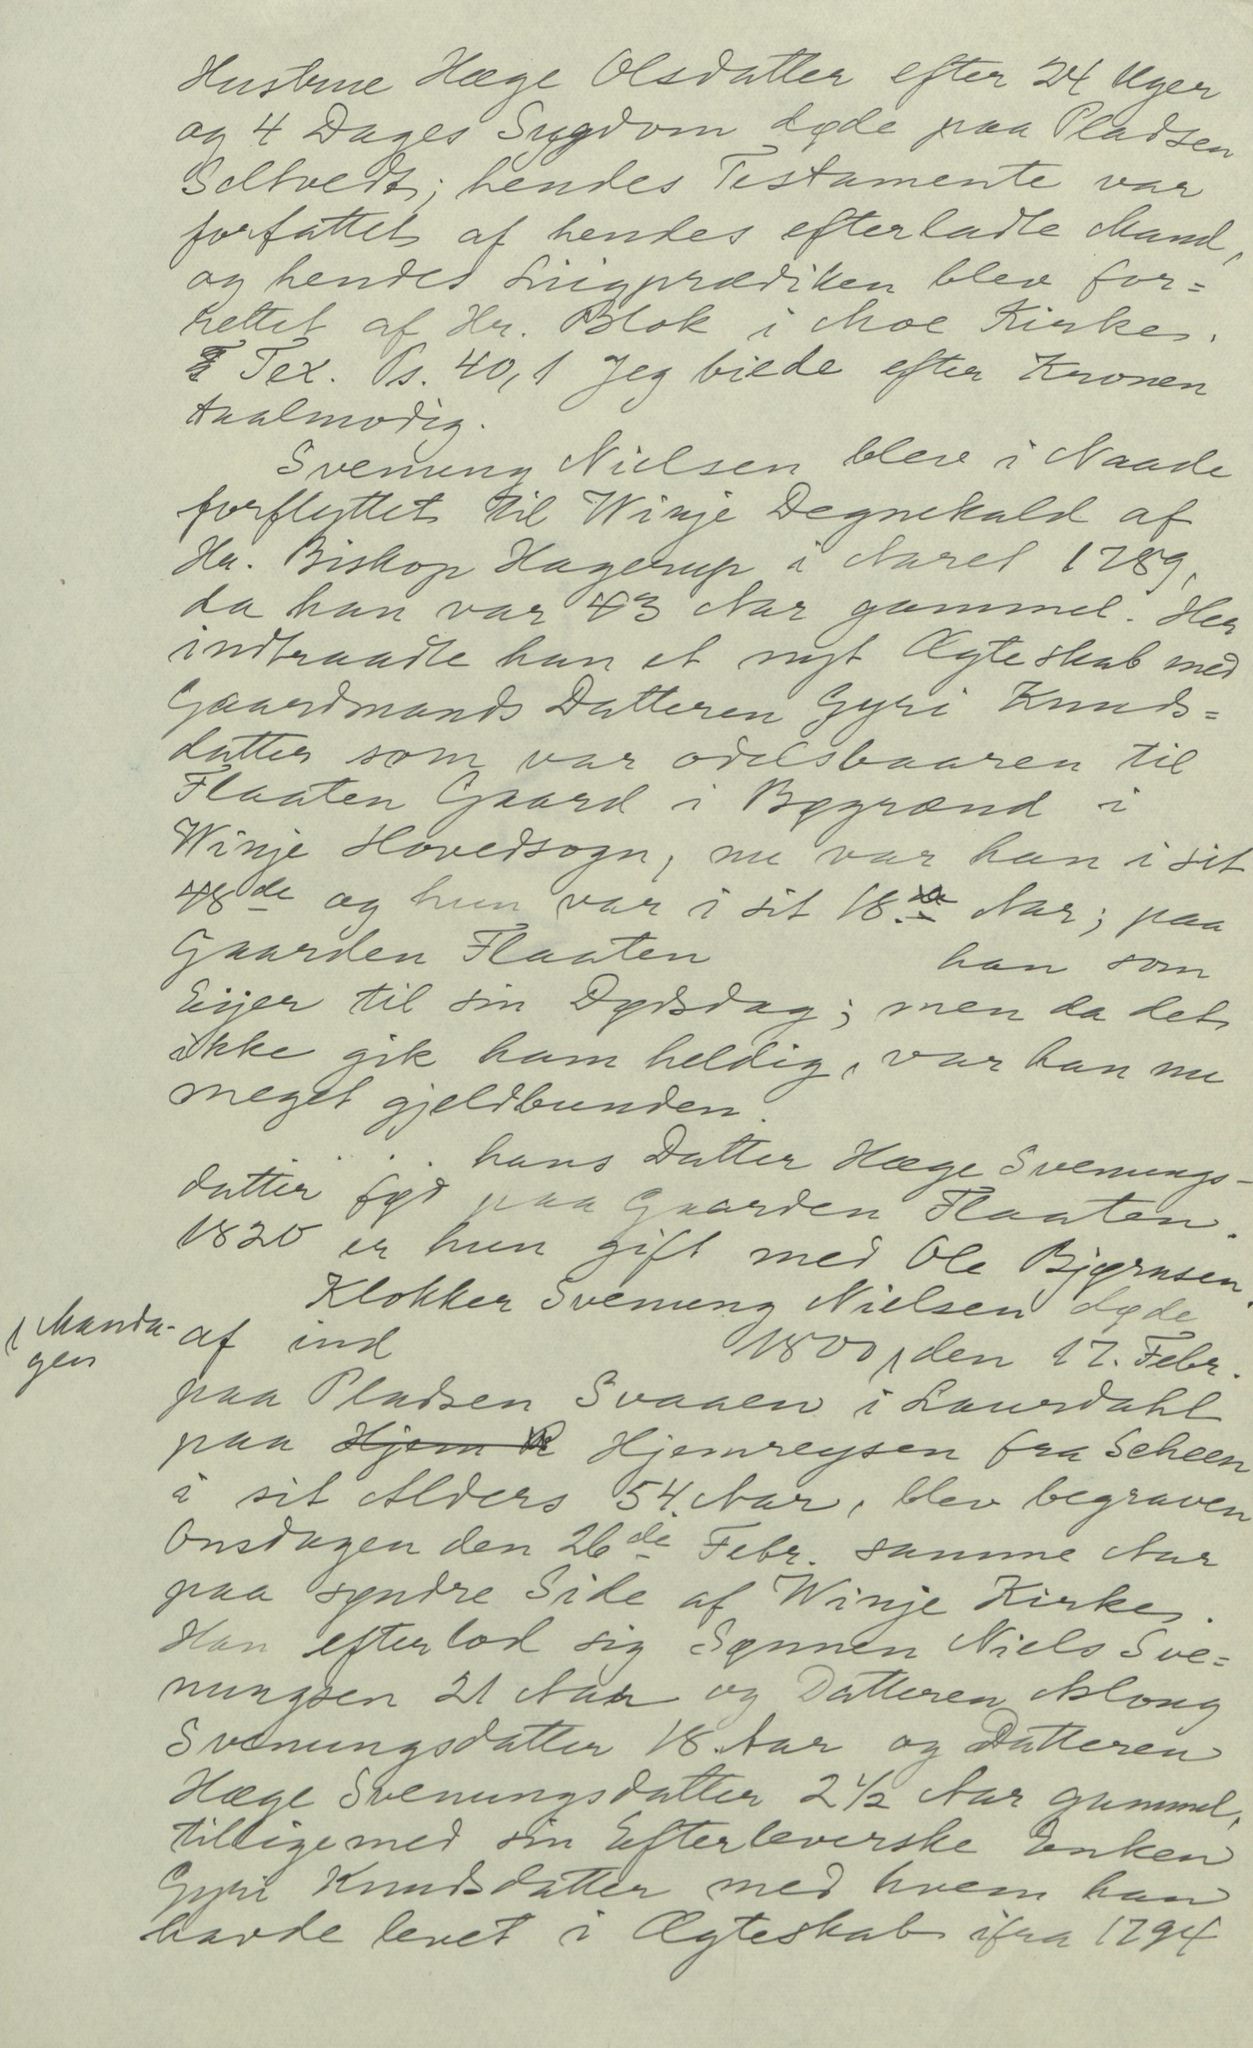 Hustrue Hæge Olsdatter efter 24 Uger
og 4 Dages Sygdom døde paa Pladsen
Seltvedt; hendes Testamente var
forfattet af hendes efterladte Mand,
og hendes Liigprædiken blev for=
rettet af Hr. Blok i Moe Kirke.
Tex. Ps. 40,1 Jeg biede efter Kronen
taalmodig.
Svenung Nielsen blev i Naade
forflyttet til Winje Degnekald af
Hr. Biskop Hagerup i Aaret 1789,
da han var 43 Aar gammel. Her
indtraadte han et nyt Ægteskab med
Gaardmands Datteren Gyri Knuds=
datter som var odelsbaaren til
Flaaten Gaard i Bøgrænd i
Winje Hovedsogn, nu var han i sit
48de og hun var i sit 18de Aar; paa
Gaarden Flaaten han som
Eijer til sin Dødsdag; men da det
ikke gik ham heldig, var han nu
meget gjeldbunden.
. . . . hans Datter Hæge Svenungs-
datter fød paa Gaarden Flaaten.
1820 er hun gift med Ole Bjørnsen.
Klokker Svenung Nielsen døde
af ind 1800, den 17. Febr.
Manda-
gen
paa Pladsen Svaaen i Laurdahl
paa Hjem Hjemreysen fra Scheen
i sit Alders 54. Aar, blev begraven
Onsdagen den 26de Febr. samme Aar
paa syndre Side af Winje Kirke.
Han efterlod sig Sønnen Niels Sve=
nungsen 21 Aar og Datteren Asloug
Svenungsdatter 18. Aar og Datteren
Hæge Svenungsdatter 2 1/2 Aar gammel,
tilligemed sin Efterleverske Enken
Gyri Knudsdatter med hvem han
havde levet i Ægteskab ifra 1794